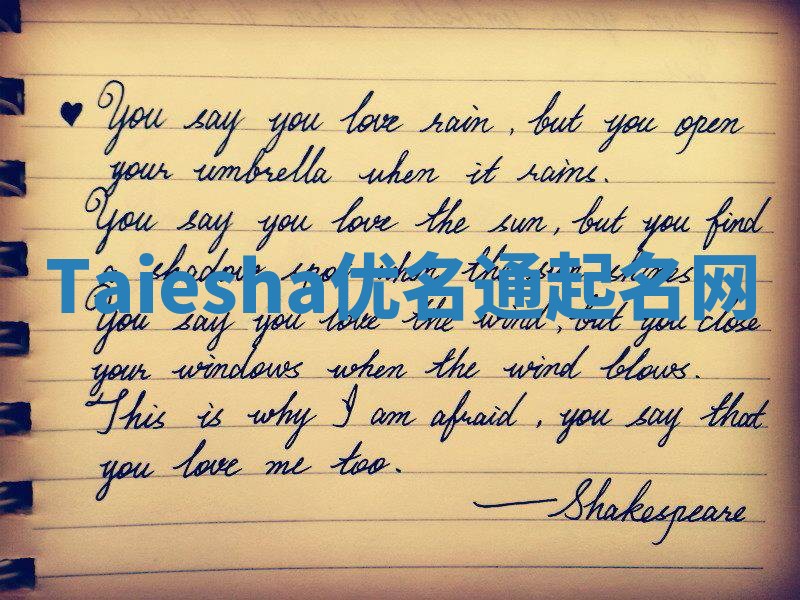 ♥ You say you love rain, but you open
your umbrella when it rains.
You say you love the sun, but you find
a shadow spot when the sun shines
Taiesha优名通起名网
You say you love the wind, but you close
your windows when the wind blows.
This is why I am afraid, you say that
you love me too.
—Shakespeare